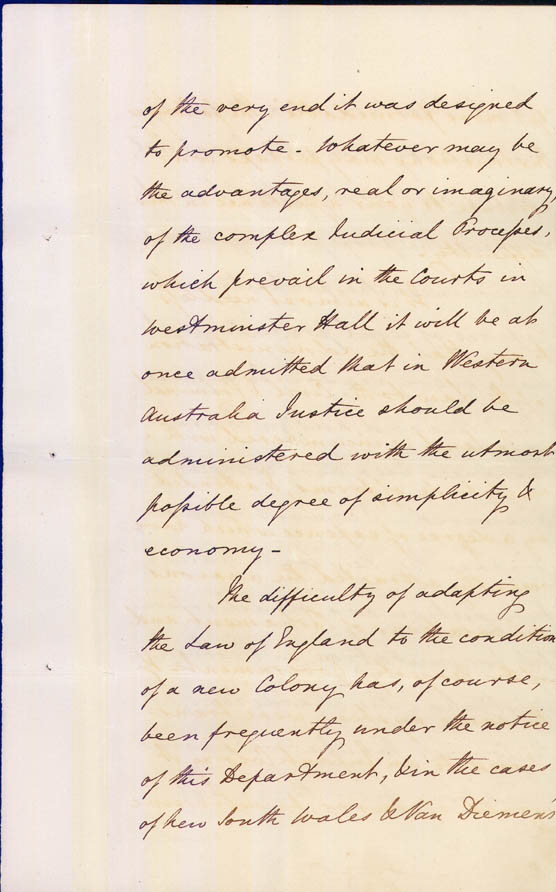 of the very end it was designed
to promote - Whatever may be
the advantages, real or imaginary,
of the complex Judicial Processes,
which prevail in the Courts in
Westminster Hall it will be at
once admitted that in Western
Australia Justice should be
administered with the utmost
possible degree of simplicity &
economy -
The difficulty of adapting
the Law of England to the condition
of a new Colony has, of course,
been frequently under the notice
of this Department, & in the cases
of New South Wales & Van Diemen's